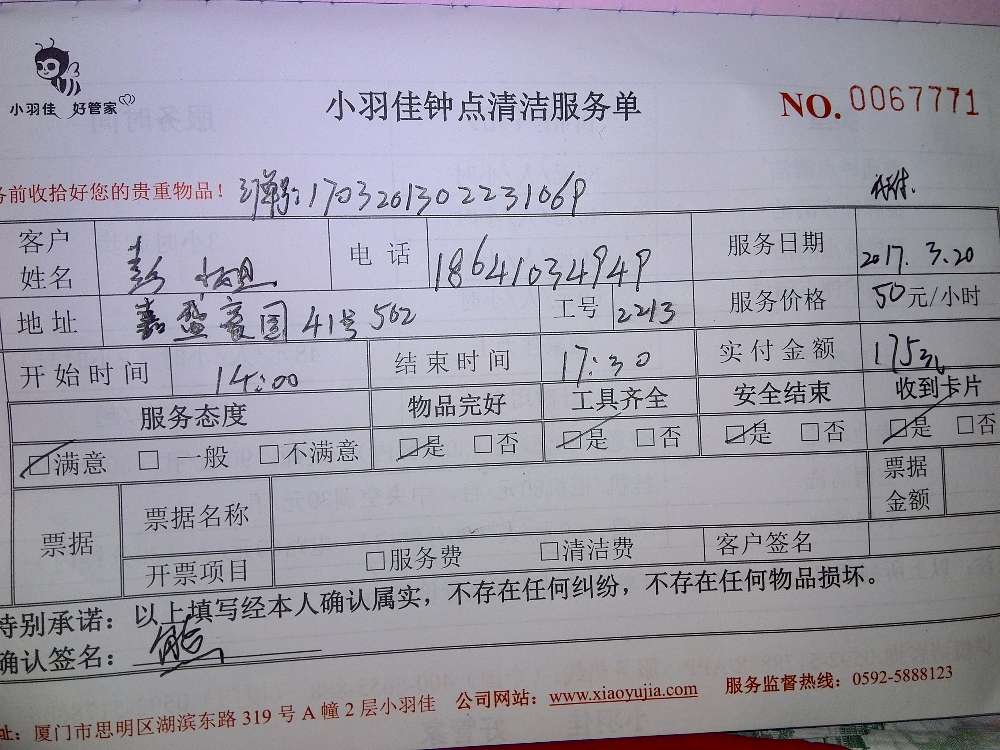 小羽佳 好管家
小羽佳钟点清洁服务单
NO. 0067771
务前收拾好您的贵重物品！ 订单号：170320130223106P
客户姓名 彭 电话 18641034949 服务日期 2017.3.20
地址 嘉盛豪园41号502 工号 2213 服务价格 50元/小时
开始时间 14:00 结束时间 17:30 实付金额 175元
服务态度 物品完好 工具齐全 安全结束 收到卡片
□满意 □一般 □不满意 □是 □否 □是 □否 □是 □否 □是 □否
票据 票据名称 票据金额
开票项目 □服务费 □清洁费 客户签名
特别承诺：以上填写经本人确认属实，不存在任何纠纷，不存在任何物品损坏。
确认签名：
址：厦门市思明区湖滨东路 319 号 A 幢 2 层小羽佳 公司网站：www.xiaoyujia.com 服务监督热线：0592-5888123